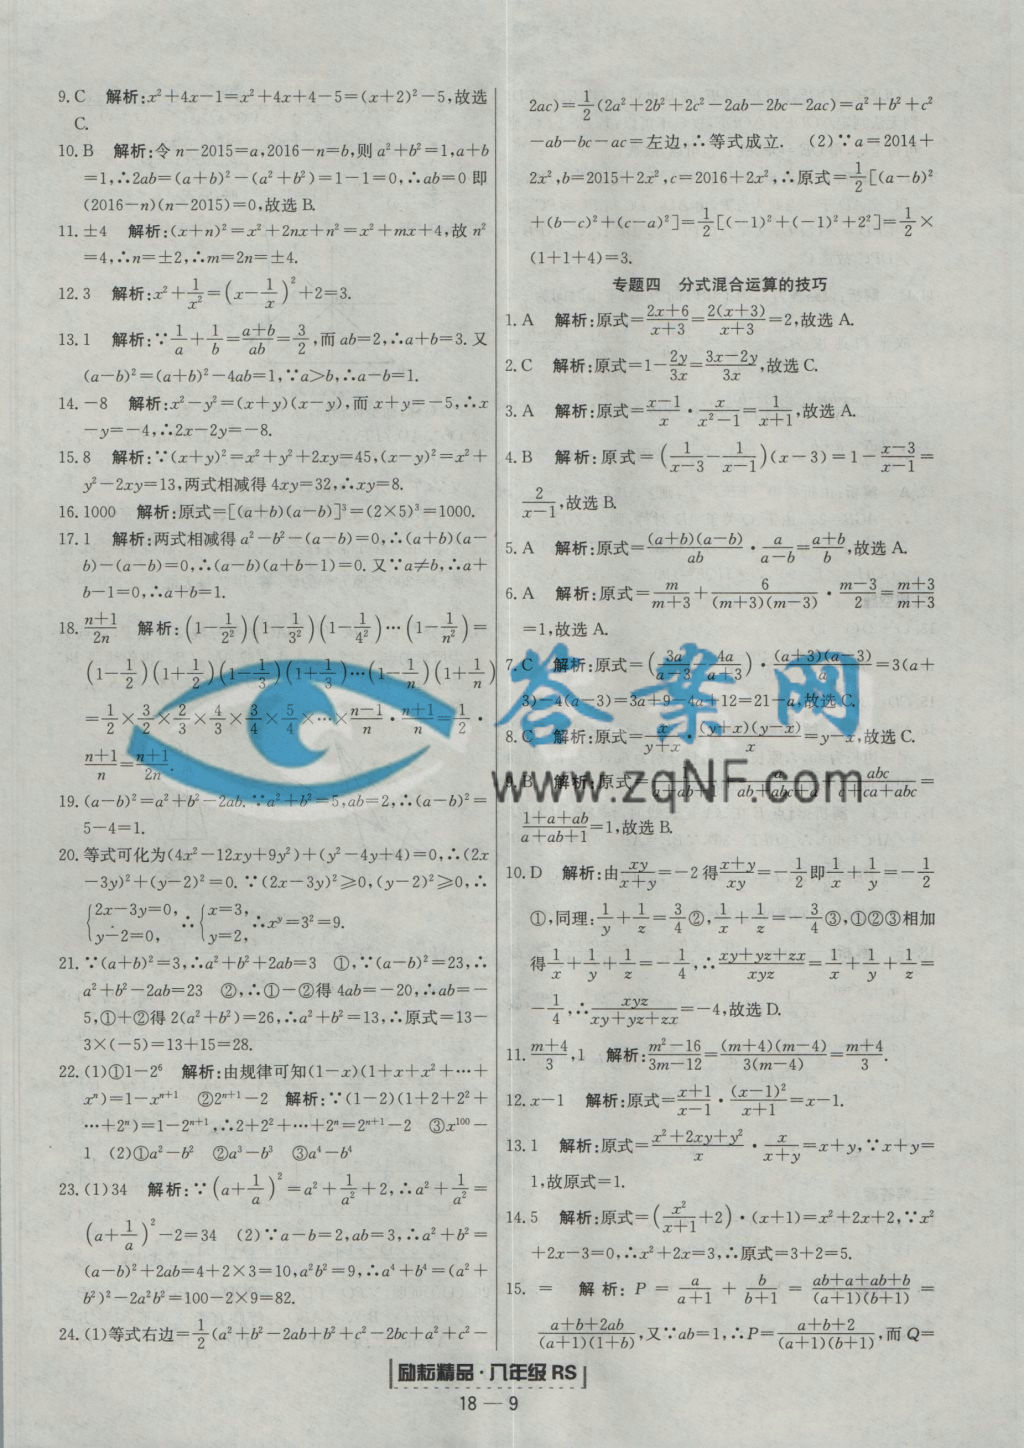 9. C　解析:x²+4x−1=x²+4x+4−5=(x+2)²−5,故选
C.
10. B　解析:令 n−2015=a,2016−n=b,则 a²+b²=1,a+b
=1,∴2ab=(a+b)²−(a²+b²)=1−1=0,∴ab=0 即
(2016−n)(n−2015)=0,故选 B.
11. ±4　解析:(x+n)²=x²+2nx+n²=x²+mx+4,故 n²
=4,∴n=±2,∴m=2n=±4.
12. 3　解析:x²+1/x²=(x−1/x)²+2=3.
13. 1　解析:∵1/a+1/b=(a+b)/ab=3/2,而 ab=2,∴a+b=3. 又
(a−b)²=(a+b)²−4ab=1,∵a>b,∴a−b=1.
14. −8　解析:x²−y²=(x+y)(x−y),而 x+y=−5,∴x
−y=−4,∴2x−2y=−8.
15. 8　解析:∵(x+y)²=x²+y²+2xy=45,(x−y)²=x²+
y²−2xy=13,两式相减得 4xy=32,∴xy=8.
16. 1000　解析:原式=[(a+b)(a−b)]³=(2×5)³=1000.
17. 1　解析:两式相减得 a²−b²−(a−b)=0,∴(a+b)(a−
b)−(a−b)=0,∴(a−b)(a+b−1)=0. 又∵a≠b,∴a+
b−1=0,∴a+b=1.
18. (n+1)/2n　解析:(1−1/2²)(1−1/3²)(1−1/4²)…(1−1/n²)=
(1−1/2)(1+1/2)(1−1/3)(1+1/3)…(1−1/n)(1+1/n)
=1/2×3/2×2/3×4/3×3/4×5/4×…×(n−1)/n·(n+1)/n=1/2·
(n+1)/n=(n+1)/2n.
19. (a−b)²=a²+b²−2ab. ∵a²+b²=5,ab=2,∴(a−b)²=
5−4=1.
20. 等式可化为(4x²−12xy+9y²)+(y²−4y+4)=0,∴(2x
−3y)²+(y−2)²=0. ∵(2x−3y)²≥0,(y−2)²≥0,∴
{2x−3y=0, y−2=0, ∴{x=3, y=2, ∴xʸ=3²=9.
21. ∵(a+b)²=3,∴a²+b²+2ab=3　①,∵(a−b)²=23,∴
a²+b²−2ab=23　②,∴①−②得 4ab=−20,∴ab=−
5,①+②得 2(a²+b²)=26,∴a²+b²=13,∴原式=13−
3×(−5)=13+15=28.
22. (1)①1−2⁶　解析:由规律可知(1−x)(1+x+x²+…+
xⁿ)=1−xⁿ⁺¹　②2ⁿ⁺¹−2　解析:∵(1−2)(1+2+2²+
…+2ⁿ)=1−2ⁿ⁺¹,∴2+2²+…+2ⁿ=2ⁿ⁺¹−2　③x¹⁰⁰−
1　(2)①a²−b²　②a³−b³　③a⁴−b⁴
23. (1)34　解析:∵(a+1/a)²=a²+1/a²+2,∴a²+1/a²=
(a+1/a)²−2=34　(2)∵a−b=2,ab=3,∴a²+b²=
(a−b)²+2ab=4+2×3=10,a²b²=9,∴a⁴+b⁴=(a²+
b²)²−2a²b²=100−2×9=82.
24. (1)等式右边=1/2(a²+b²−2ab+b²+c²−2bc+a²+c²−
2ac)=1/2(2a²+2b²+2c²−2ab−2bc−2ac)=a²+b²+c²
−ab−bc−ac=左边,∴等式成立.　(2)∵a=2014+
2x²,b=2015+2x²,c=2016+2x²,∴原式=1/2[(a−b)²
+(b−c)²+(c−a)²]=1/2[(−1)²+(−1)²+2²]=1/2×
(1+1+4)=3.
专题四　分式混合运算的技巧
1. A　解析:原式=(2x+6)/(x+3)=2(x+3)/(x+3)=2,故选 A.
2. C　解析:原式=1−2y/3x=(3x−2y)/3x,故选 C.
3. A　解析:原式=(x−1)/x·x/(x²−1)=1/(x+1),故选 A.
4. B　解析:原式=(1/(x−3)−1/(x−1))(x−3)=1−(x−3)/(x−1)=
2/(x−1),故选 B.
5. A　解析:原式=(a+b)(a−b)/ab·a/(a−b)=(a+b)/b,故选 A.
6. A　解析:原式=m/(m+3)+6/(m+3)(m−3)·(m−3)/2=(m+3)/(m+3)
=1,故选 A.
7. C　解析:原式=(3a/(a−3)−4a/(a+3))·(a+3)(a−3)/a=3(a+
3)−4(a−3)=3a+9−4a+12=21−a,故选 C.
8. C　解析:原式=x/(y+x)·(y+x)(y−x)/x=y−x,故选 C.
9. B　解析:原式= a+ab+1 ab+abc+a abc c+ca+abc=
(1+a+ab)/(a+ab+1)=1,故选 B.
10. D　解析:由xy/(x+y)=−2 得(x+y)/xy=−1/2即1/x+1/y=−1/2
①,同理:1/y+1/z=3/4②,1/x+1/z=−3/4③,①②③相加
得1/x+1/y+1/z=−1/4,∴(xy+yz+zx)/xyz=1/x+1/y+1/z=
−1/4,∴xyz/(xy+yz+zx)=−4,故选 D.
11. (m+4)/3,1　解析:(m²−16)/(3m−12)=(m+4)(m−4)/3(m−4)=(m+4)/3.
12. x−1　解析:原式=(x+1)/(x−1)·(x−1)²/(x+1)=x−1.
13. 1　解析:原式=(x²+2xy+y²)/x·x/(x+y)=x+y,∵x+y=
1,故原式=1.
14. 5　解析:原式=(x²/(x+1)+2)·(x+1)=x²+2x+2,∵x²
+2x−3=0,∴x²+2x=3,∴原式=3+2=5.
15. =　解析:P=a/(a+1)+b/(b+1)=(ab+a+ab+b)/(a+1)(b+1)=
(a+b+2ab)/(a+1)(1+b),又∵ab=1,∴P=(a+b+2)/(a+1)(b+1),而 Q=
励耘精品·八年级 RS
18 — 9
答案网
www.zqNF.com